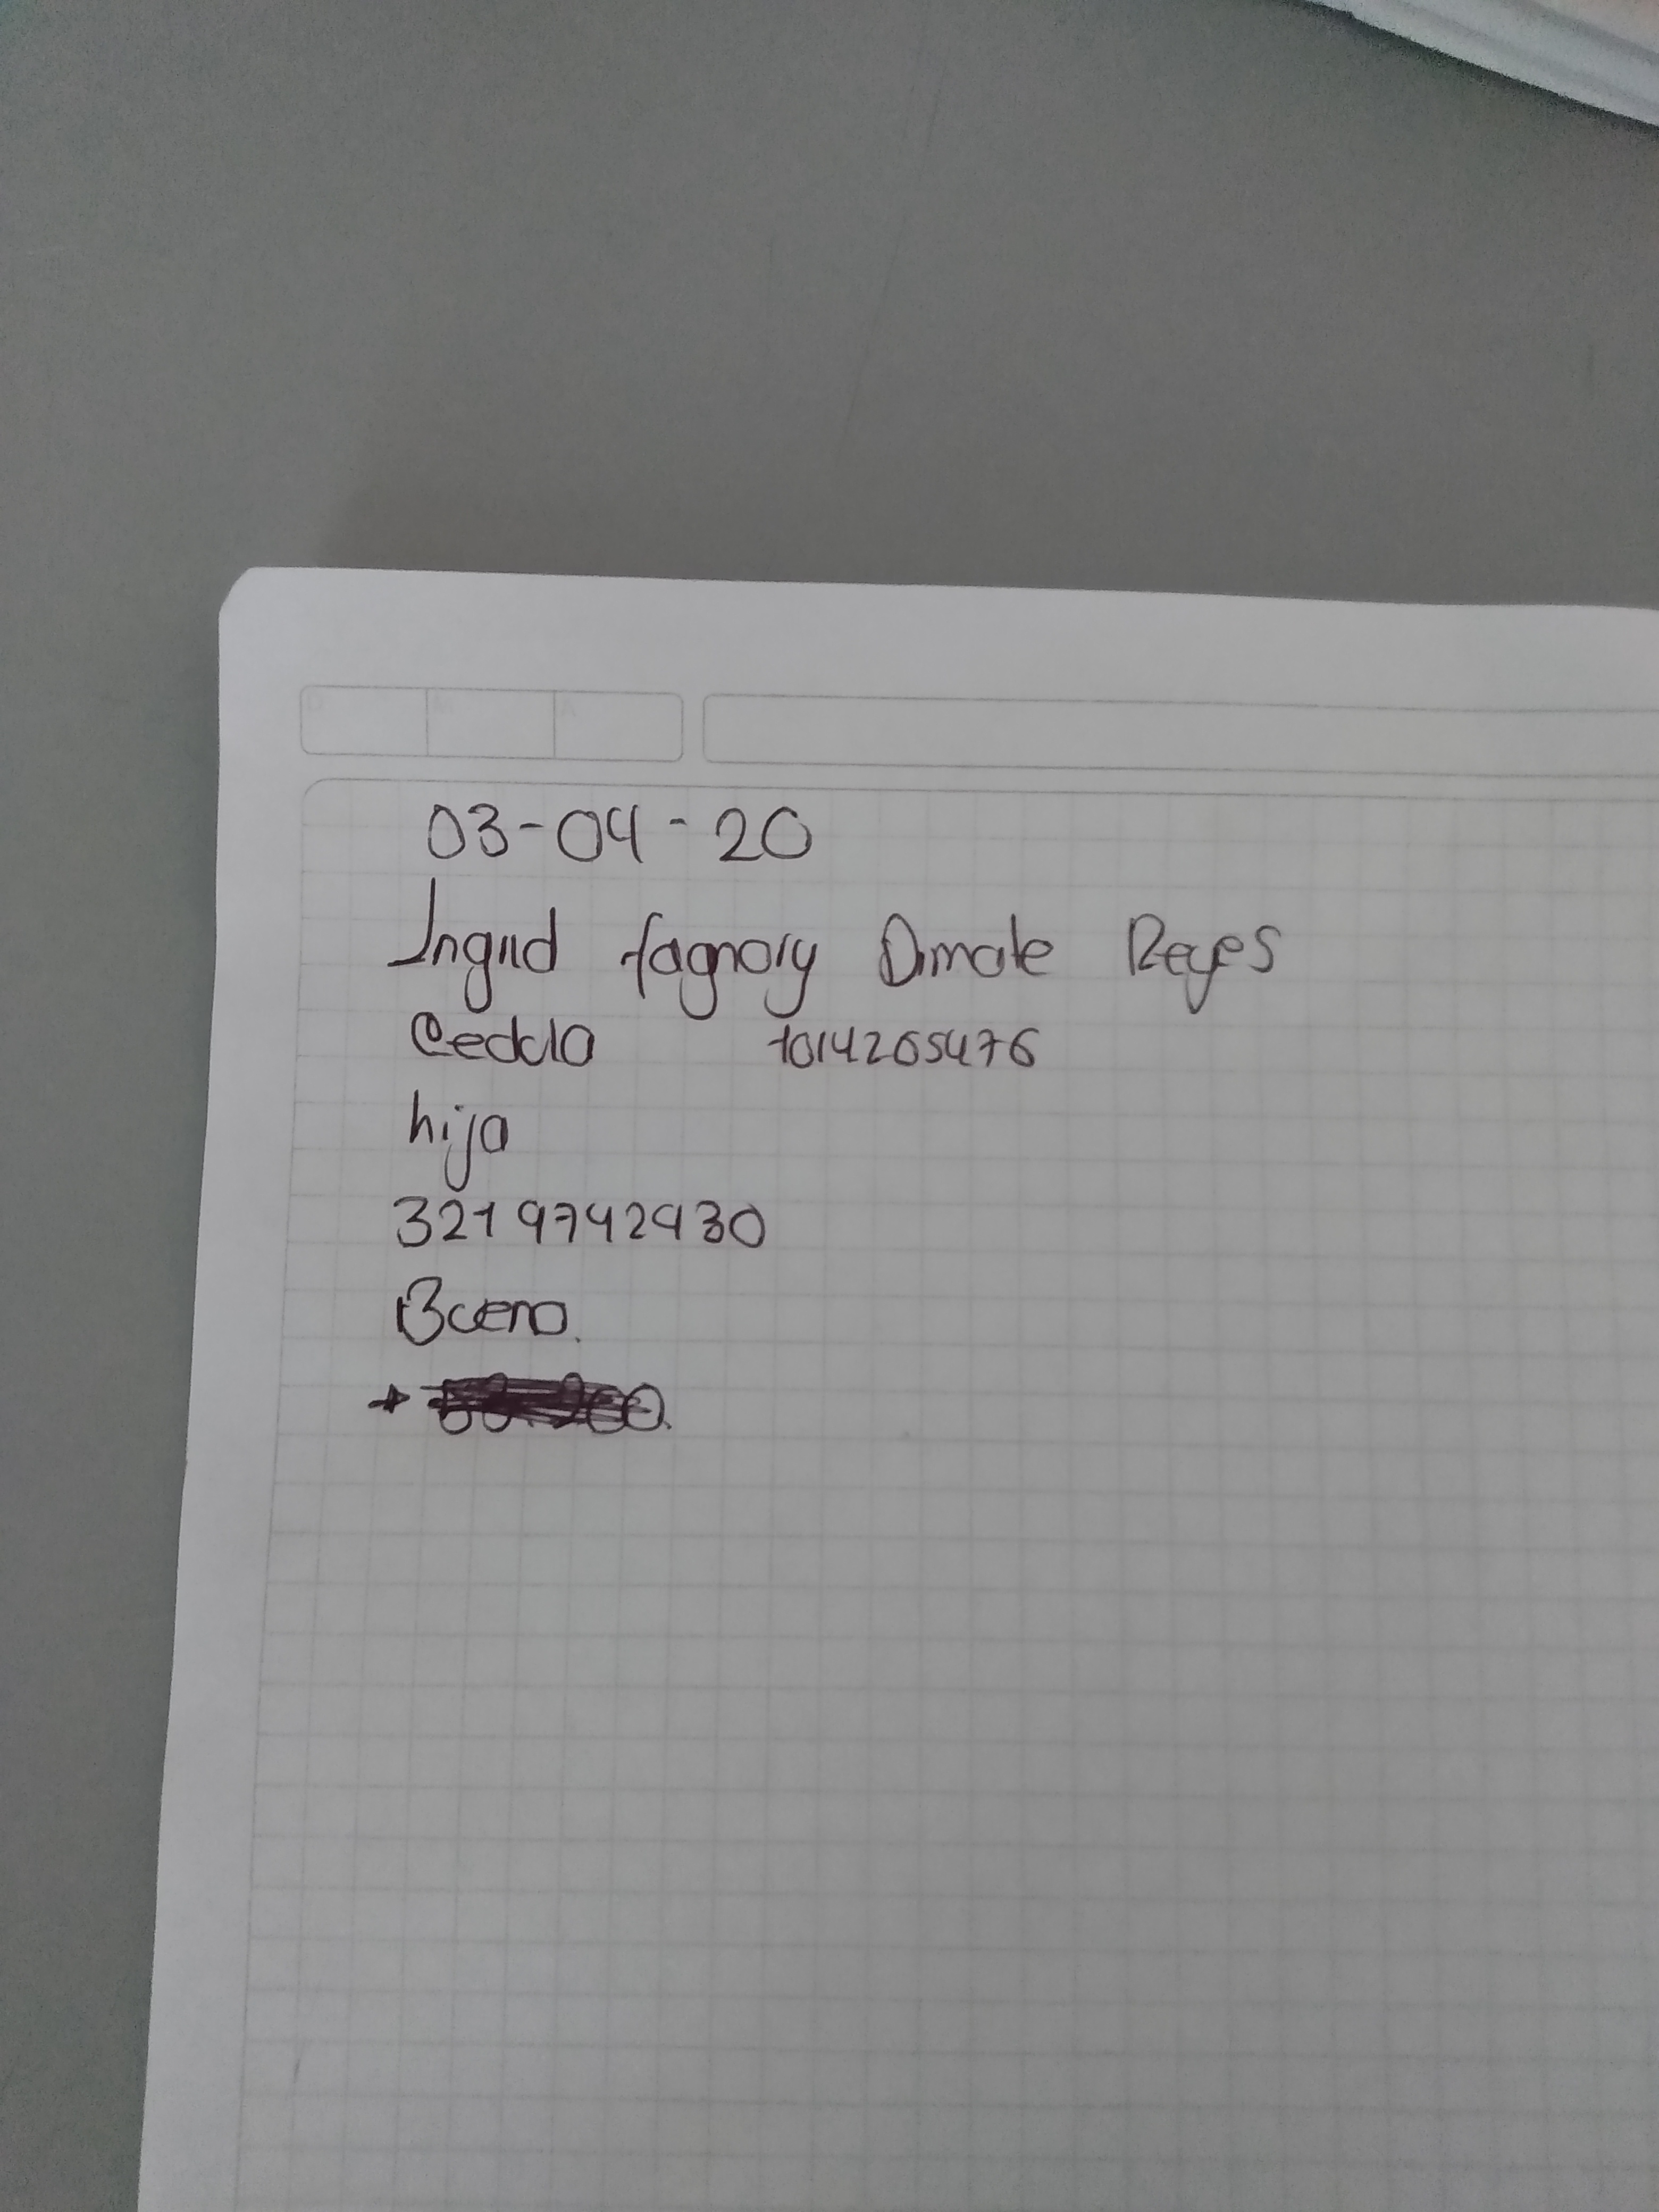 03-04-20
Ingrid fagnory Dimate Reyes
Cedula 1014265476
hija
3219742930
Bueno.